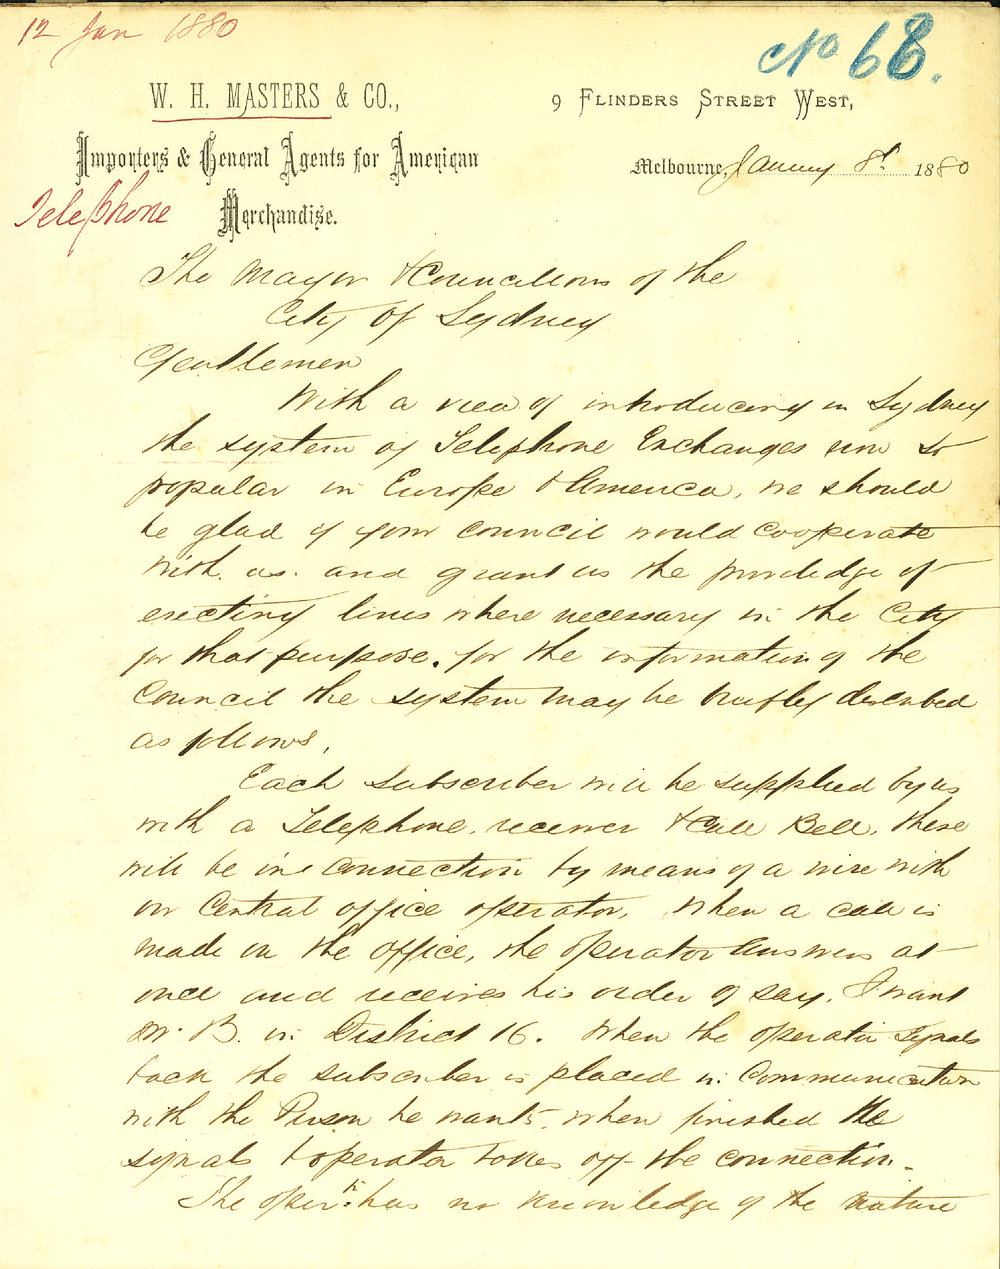 12 Jan 1880
No 68.
W. H. MASTERS & CO.,
9 FLINDERS STREET WEST,
Importers & General Agents for American
Melbourne, January 8t 1880
Telephone
Merchandise.
The Mayor & Councillors of the
City of Sydney
Gentlemen
With a view of introducing in Sydney
the system of Telephone Exchanges now so
popular in Europe & America, we should
be glad if your council would cooperate
with us and grant us the priviledge of
erecting lines where necessary in the City
for that purpose. for the information of the
Council the system may be briefly described
as follows,
Each subscriber will be supplied by us
with a Telephone, receiver & Call Bell, these
will be in connection by means of a wire with
our Central office operator, When a call is
made in the office, the operator answers at
once and receives his order of say, I want
Mr. B. in District 16. When the operator signals
back the subscriber is placed in Communication
with the Person he wants, when finished the
signals & operator takes off the connection.
The opertr. has no knowledge of the nature